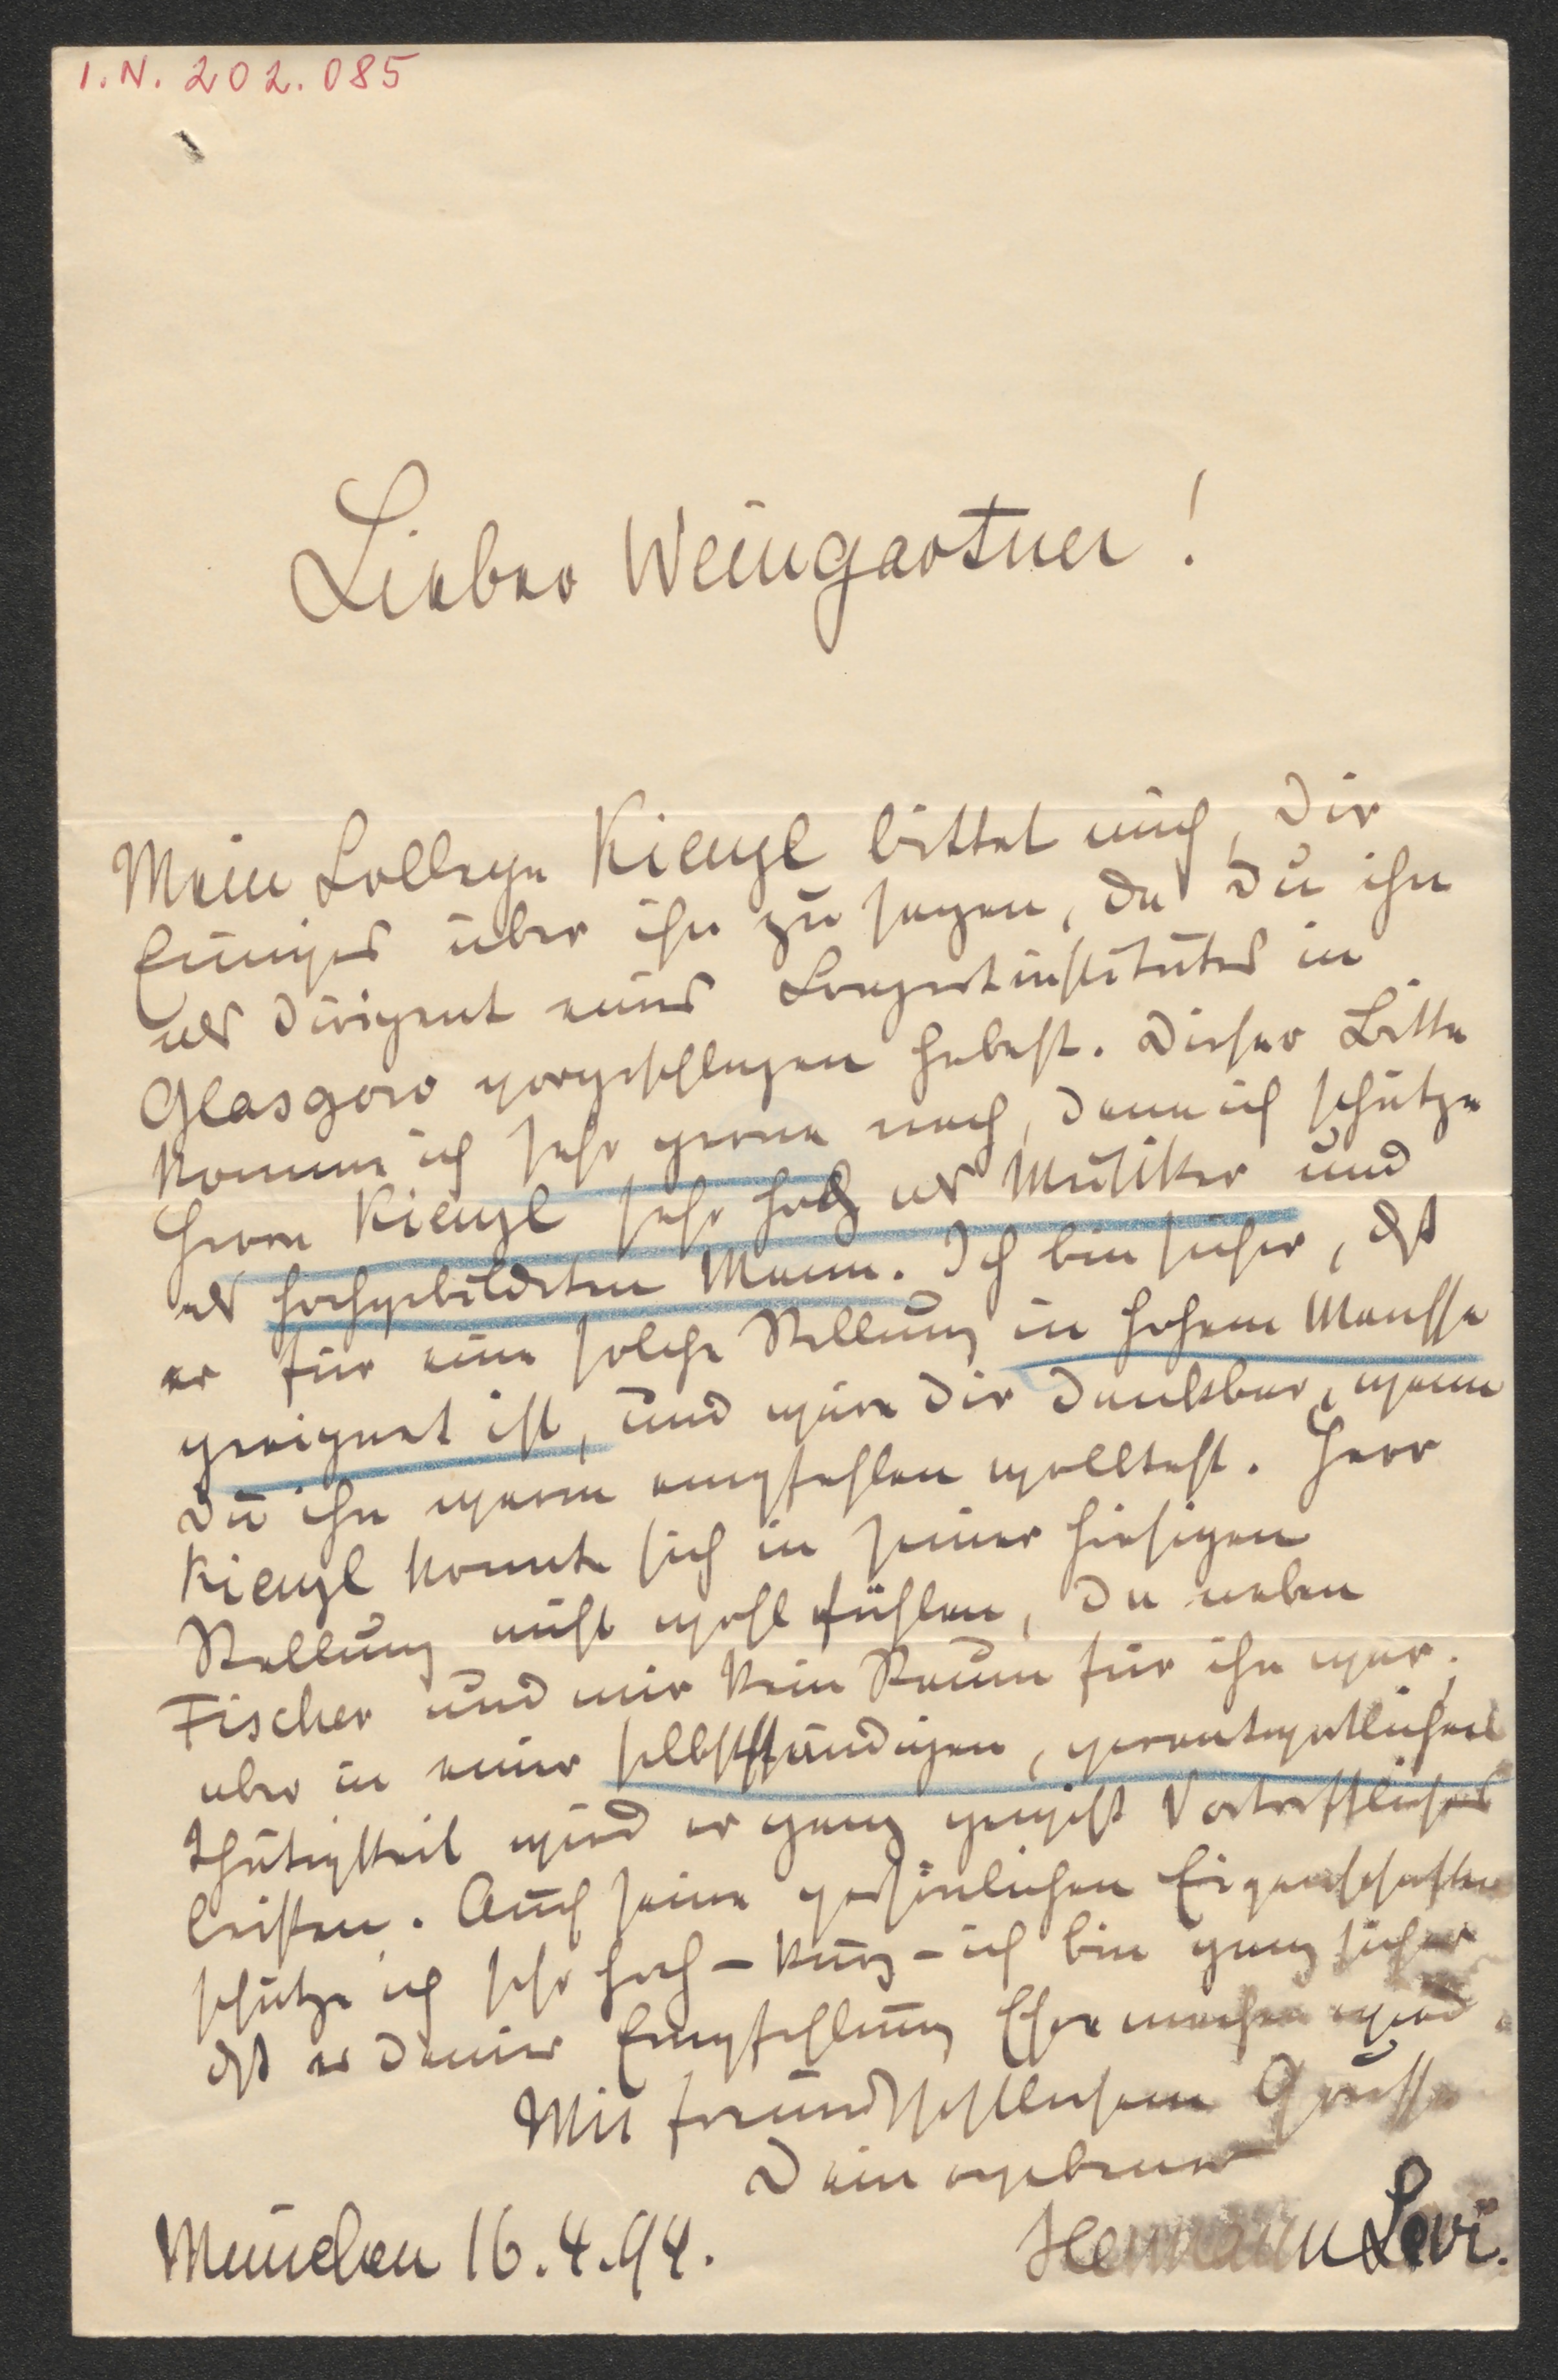 I.N. 202.085
Lieber Weingartner!
Mein College Kienzl bittet mich, Dir
Einiges über ihn zu sagen, da Du ihn
als Dirigent eines Konzertinstitutes in
Glasgow vorgeschlagen habest. Dieser Bitte
komme ich sehr gerne nach, denn ich schätze
Herrn Kienzl sehr hoch als Musiker und
als hochgebildeten Mann. Ich bin sicher, dss
er für eine solche Stellung in hohem Maasse
geeignet ist, und wäre Dir dankbar, wenn
Du ihn warm empfehlen wolltest. Herr
Kienzl konnte sich in seiner hiesigen
Stellung nicht wohl fühlen, da neben
Fischer und mir kein Raum für ihn war;
aber in einer selbstständigen, verantwortlichen
Thätigkeit wird er ganz gewiss Vortreffliches
leisten. Auch seine persönlichen Eigenschaften
schätze ich sehr hoch – kurz – ich bin ganz sicher
dss er Deiner Empfehlung Ehre machen wird.
Mit freundschftlichem Grusse
Dein ergebener
München 16.4.94.
Hermann Levi.